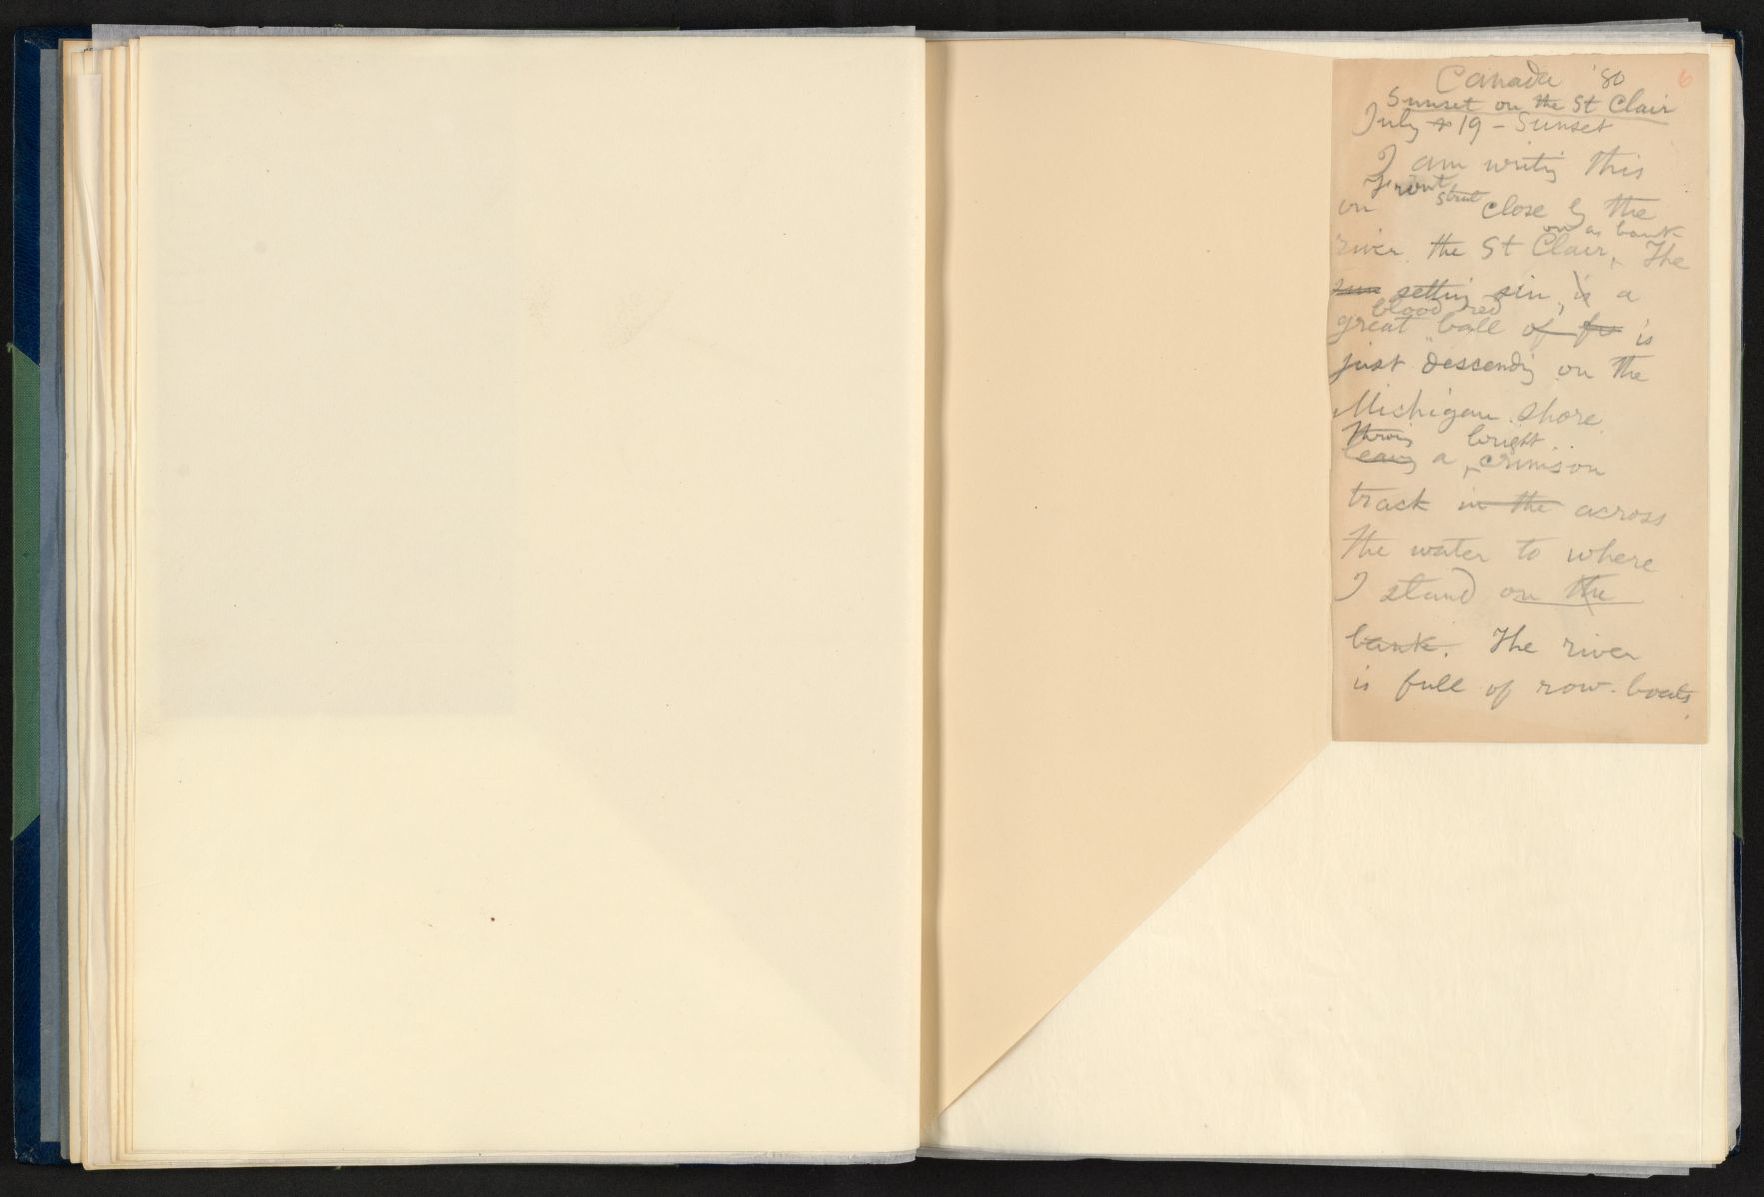 Canada '80
6
Sunset on the St Clair
July 19 - Sunset
I am writing this
Front Street
on close by the
on a bank
river the St Clair, The
sun setting sun, is a
blood red
great ball of is
just descending on the
Michigan shore
throwing bright
leaving a crimson
track in the across
the water to where
I stand on the
bank. The river
is full of row-boats,